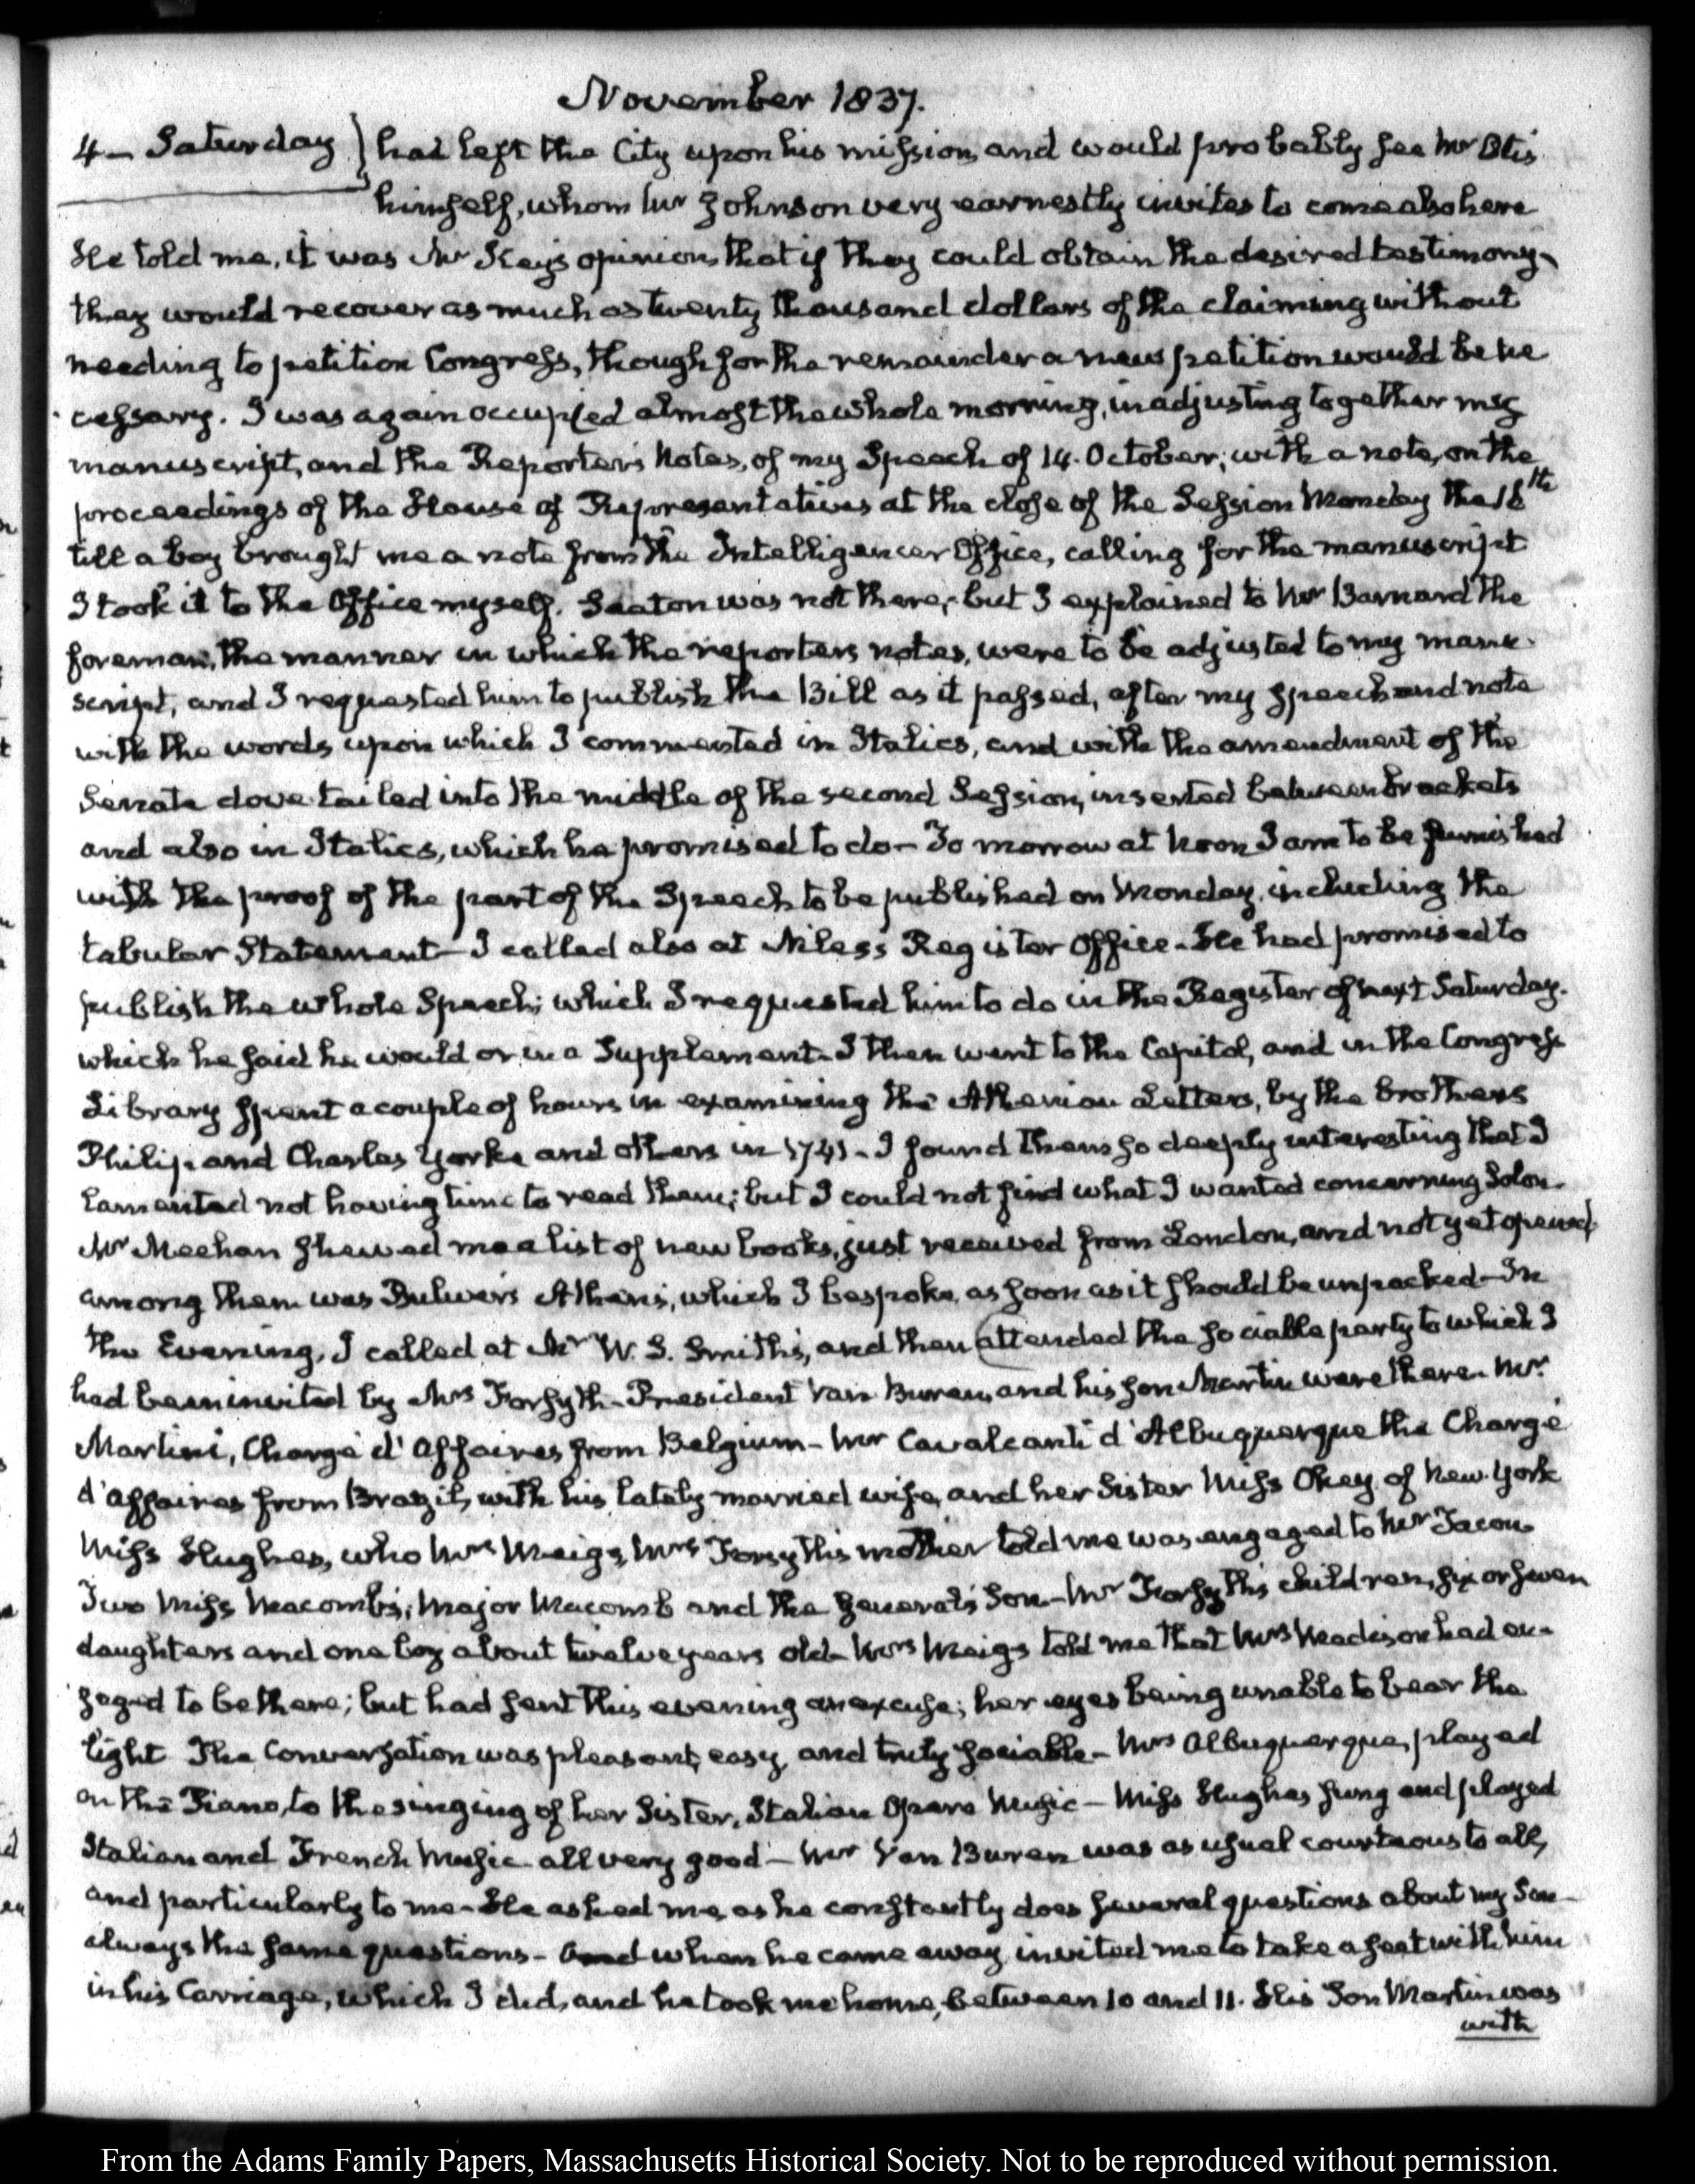 November 1837.
4 – Saturday } had left the City upon his mission, and would probably see Mr Otis
himself, whom Mr Johnson very earnestly invites to come also here
He told me, it was Mr Key's opinion, that if they could obtain the desired testimony,
they would recover as much as twenty thousand dollars of the claiming without
needing to petition Congress, though for the remainder a new petition would be ne
cessary. I was again occupied almost the whole morning, in adjusting together my
manuscript, and the Reporter's Notes, of my Speech of 14. October; with a note, on the
proceedings of the House of Representatives at the close of the Session Monday the 16th
till a boy brought me a note from the Intelligencer Office, calling for the manuscript
I took it to the Office myself. Seaton was not there, but I explained to Mr Barnard the
foreman, the manner in which the reporters notes, were to be adjusted to my manu-
script, and I requested him to publish the Bill as it passed, after my speech and note
with the words upon which I commented in Italics, and with the amendment of the
Senate dovetailed into the middle of the second Session, inserted between brackets
and also in Italics, which he promised to do – To morrow at Noon I am to be furnished
with the proof of the part of the Speech to be published on Monday, including the
tabular Statement – I called also at Niles's Register Office – He had promised to
publish the whole Speech; which I requested him to do in the Register of next Saturday.
which he said he would or in a Supplement – I then went to the Capitol, and in the Congress
Library spent a couple of hours in examining the Athenian Letters, by the brothers
Philip and Charles Yorke and others in 1741 – I found them so deeply interesting that I
lamented not having time to read them; but I could not find what I wanted concerning Solon –
Mr Meehan shewed me a list of new books, just received from London, and not yet opened,
among them was Bulwer's Athens, which I bespoke, as soon as it should be unpacked – In
the Evening, I called at Mr W. S. Smith's, and then attended the sociable party to which I
had been invited by Mrs Forsyth – President Van Buren, and his son Martin were there – Mr.
Martini, Chargé d'Affaires from Belgium – Mr Cavalcanti d'Albuquerque the Chargé
d'affaires from Brazil, with his lately married wife, and her Sister Miss Okey of New York
Miss Hughes, who Mrs Meigs, Mrs Forsyth's mother told me was engaged to Mr Tacon
Two Miss Macombs, Major Macomb and the General's Son – Mr Forsyth's children, six or seven
daughters and one boy about twelve years old – Mrs Meigs told me that Mrs Madison had en-
gaged to be there; but had sent this evening an excuse; her eyes being unable to bear the
light The Conversation was pleasant, easy, and truly sociable – Mrs Albuquerque, played
on the Piano, to the singing of her Sister, Italian Opera Music – Miss Hughes sung and played
Italian and French Music all very good – Mr Van Buren was as usual courteous to all,
and particularly to me – He asked me, as he constantly does several questions about my Son –
always the same questions – And when he came away invited me to take a seat with him
in his Carriage, which I did, and he took me home, between 10 and 11. His Son Martin was
with
From the Adams Family Papers, Massachusetts Historical Society. Not to be reproduced without permission.